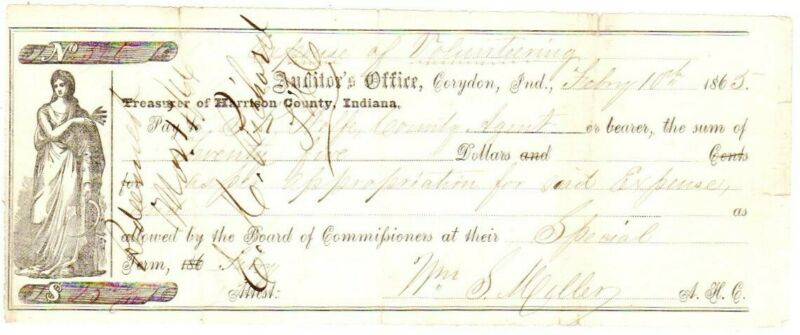 No
Expense of Volunteering
Auditor's Office, Corydon, Ind., Febry 10th 1865.
Treasurer of Harrison County, Indiana,
Pay to County Agent or bearer, the sum of
Seventy five Dollars and Cents
as per appropriation for said Expense, as
allowed by the Board of Commissioners at their Special
Term, 186
$ 75 Attest: Wm S. Miller A. H. C.
Redeemed